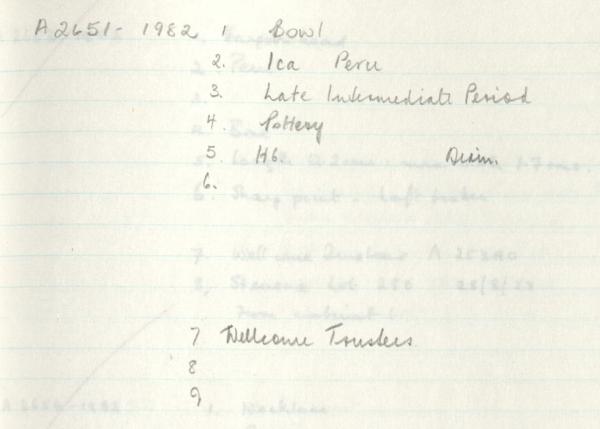 A2651-1982 1 Bowl
2. Ica Peru
3. Late Intermediate Period
4. Pottery
5. Ht. Diam.
6.
7 Wellcome Trustees
8
9